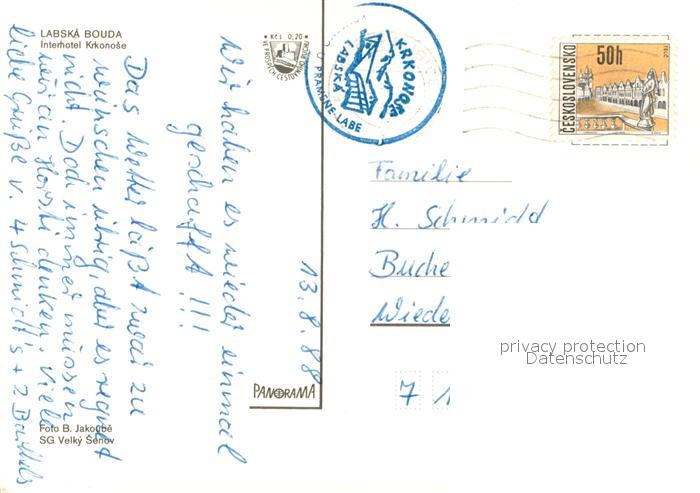 LABSKÁ BOUDA
Interhotel Krkonoše
Kčs 0,20
VE PROSPĚCH CESTOVNÍHO RUCHU
U PRAMENE LABE
KRKONOŠE
LABSKÁ
ČESKOSLOVENSKO
50h
TELČ
13.8.88
Wir haben es wieder einmal
geschafft !!!
Das Wetter läßt zwar zu
wünschen übrig, aber es regnet
nicht. Doch immer müssen
wir an Horst denken. Viele
liebe Grüße v. 4 Schmidt's + 2
Familie
H. Schmidd
Buche
Wiede
7 1
PANORAMA
Foto B. Jakoubě
SG Velký Šenov
privacy protection
Datenschutz